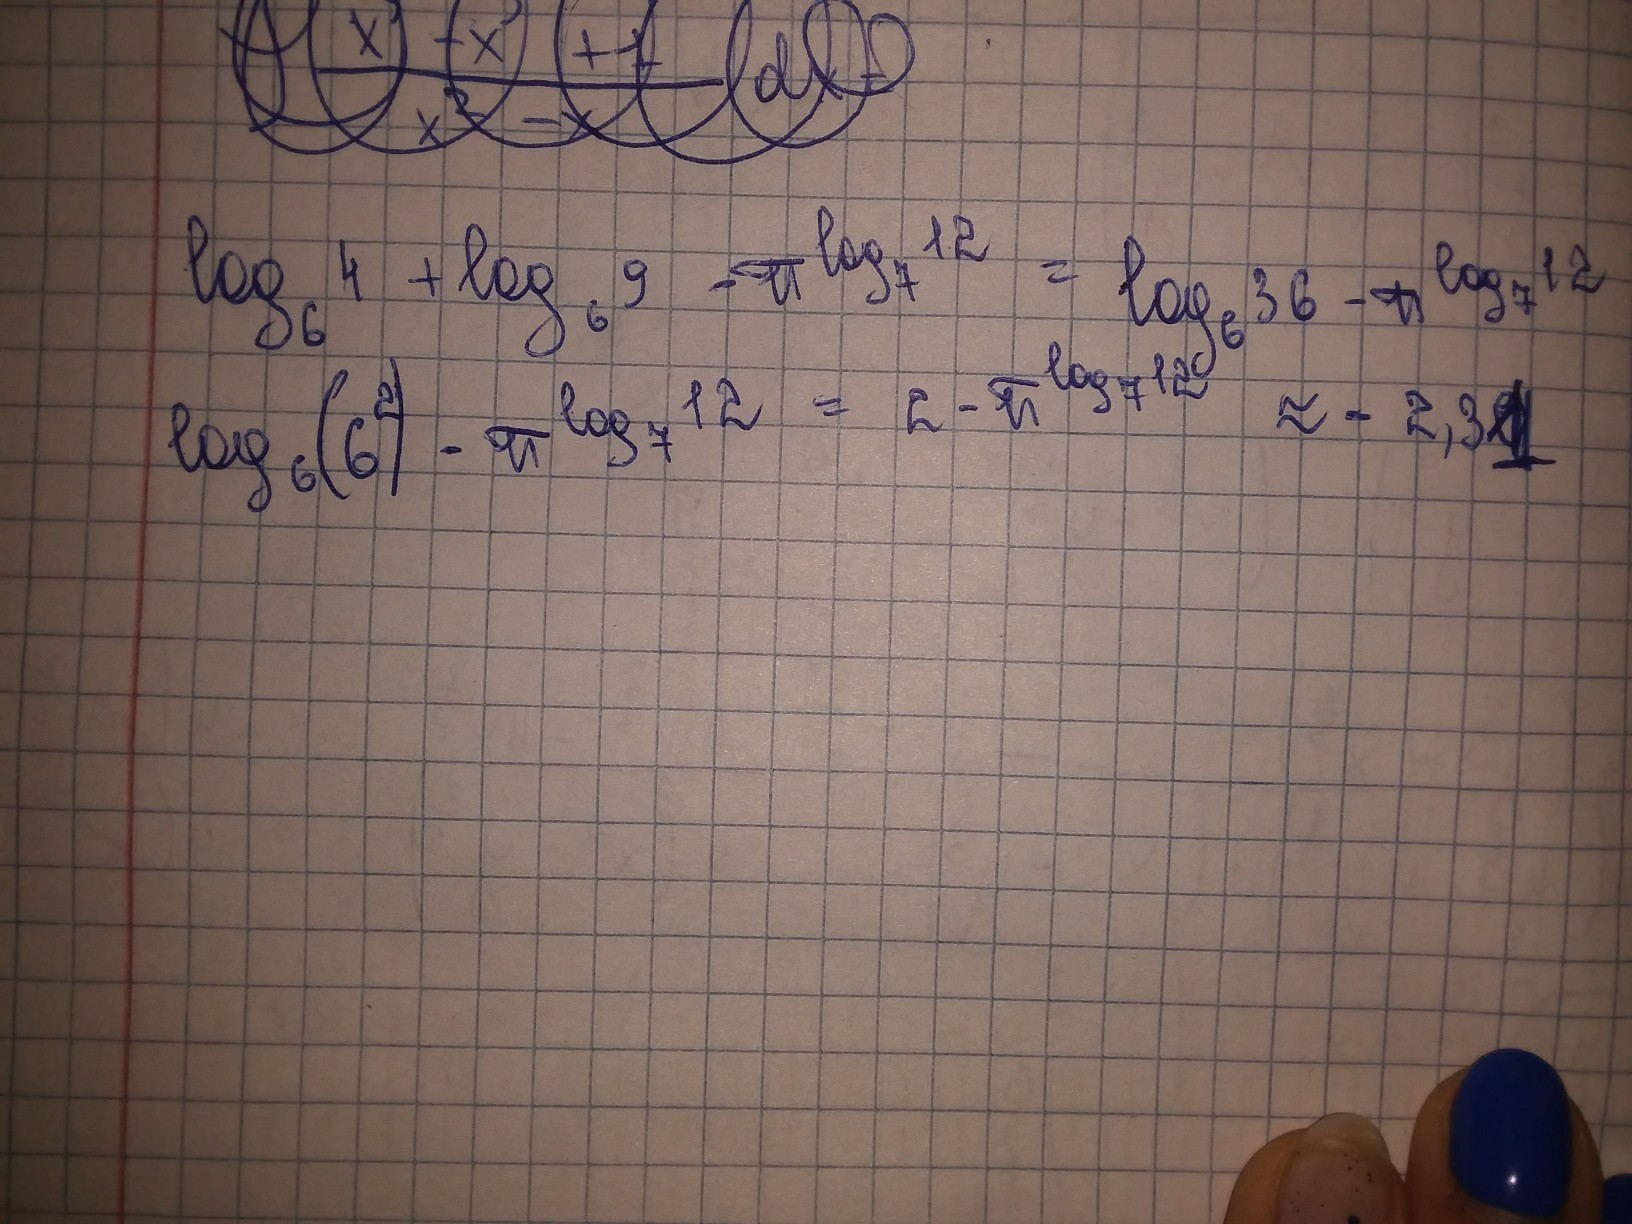 x³ - x² + 1 dx
x² - x
log₆ 4 + log₆ 9 - π^log₇ 12 = log₆ 36 - π^log₇ 12
log₆ (6²) - π^log₇ 12 = 2 - π^log₇ 12 ≈ - 2,31